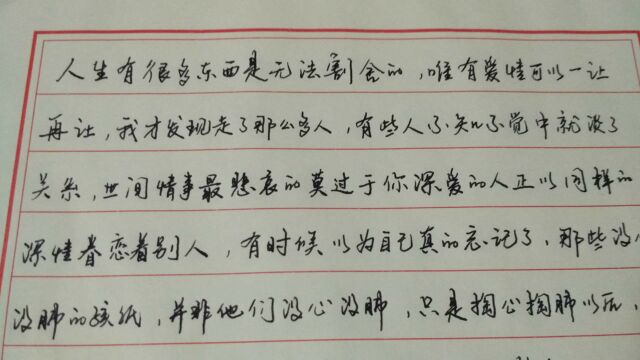 人生有很多东西是无法割舍的，唯有爱情可以一让
再让，我才发现走了那么多人，有些人不知不觉中就没了
关系，世间情事最悲哀的莫过于你深爱的人正以同样的
深情眷恋着别人，有时候以为自己真的忘记了，那些没心
没肺的孩纸，并非他们没心没肺，只是掏心掏肺以后，